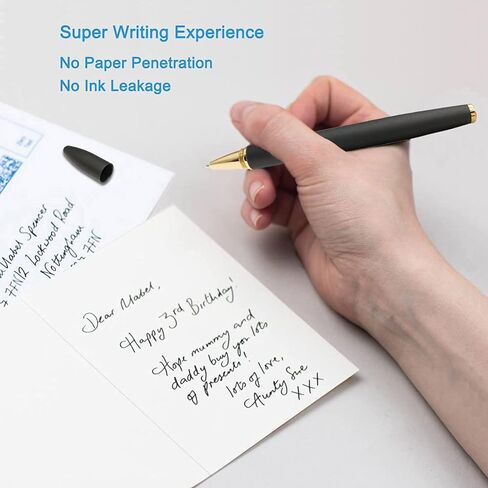 Super Writing Experience
No Paper Penetration
No Ink Leakage
Mabel Spencer
Lockwood Road
Nottingham
7FN
Dear Mabel,
Happy 3rd Birthday!
Hope mummy and
daddy buy you lots
of presents!
lots of love,
Aunty Sue
XXX